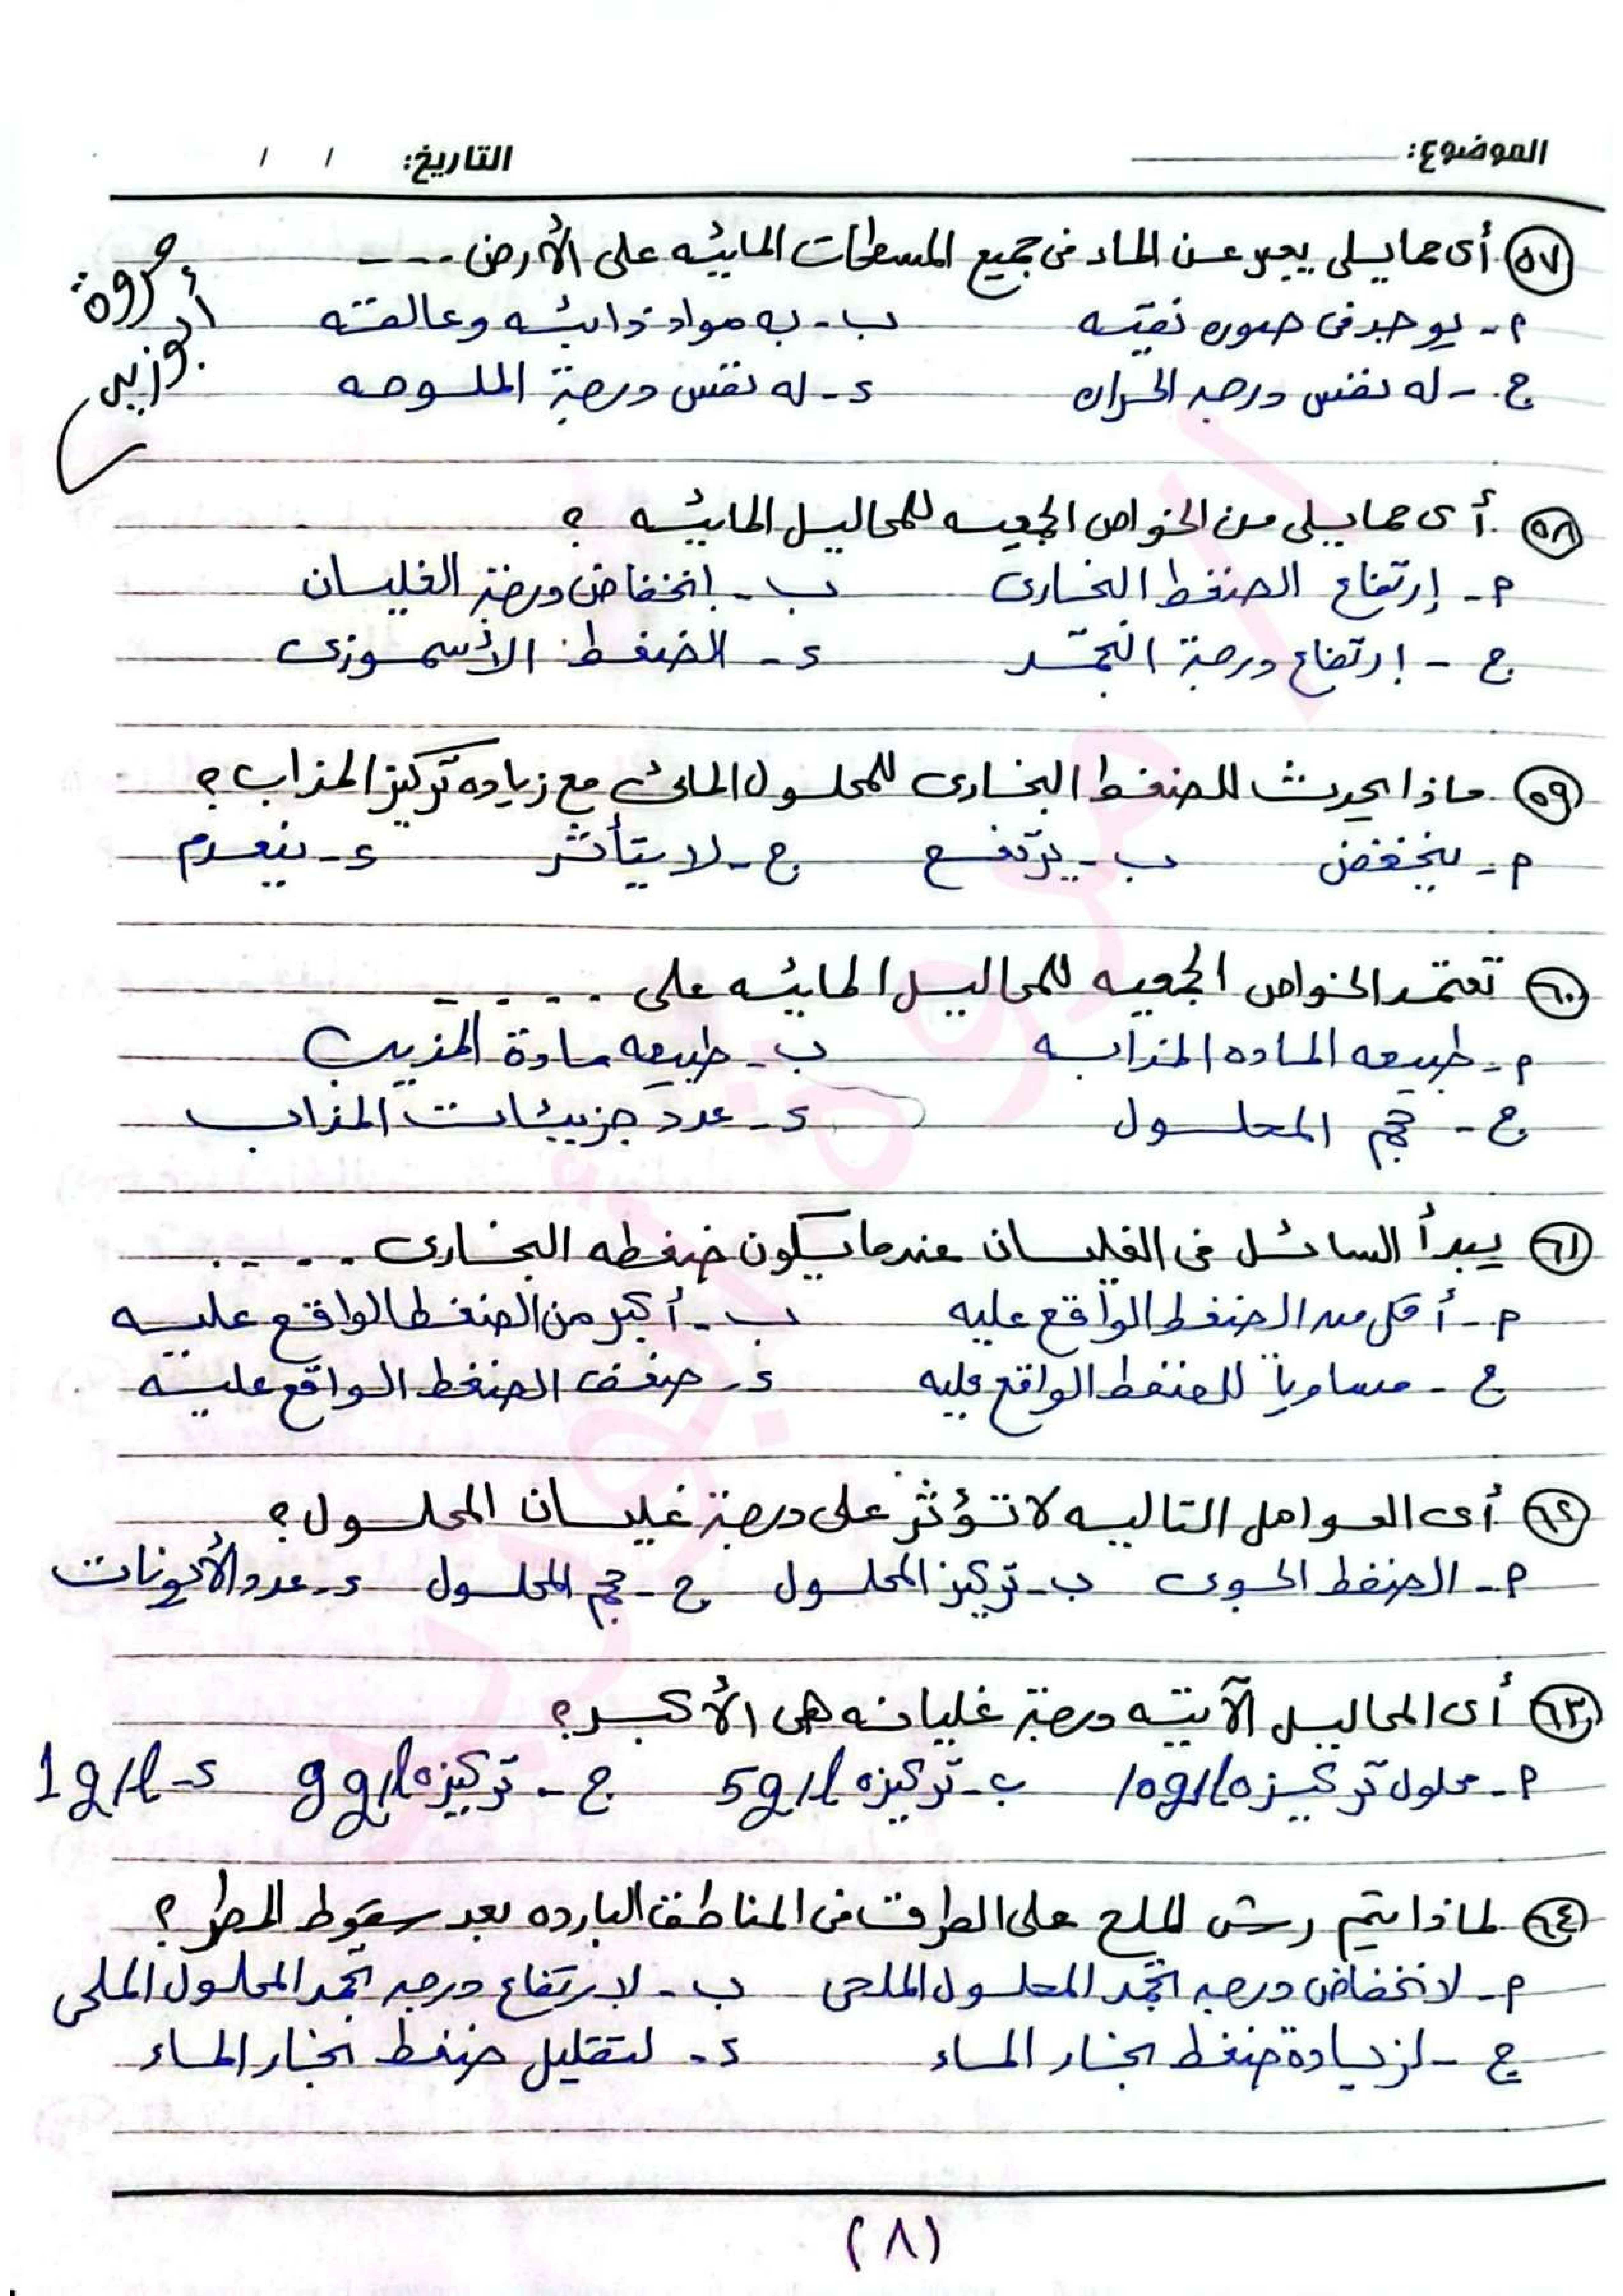 الموضوع: التاريخ: / /
٥٧ أى مما يلى يعبر عن الماء فى جميع المسطحات المائيه على الأرض ----
مروة أبوزيد
م - يوجد فى صوره نقيه ب - به مواد ذائبه وعالقه
ج - له نفس درجه الحراره د - له نفس درجة الملوحه
٥٨ أى مما يلى من الخواص الجمعيه للمحاليل المائيه ؟
م - إرتفاع الضغط البخارى ب - انخفاض درجة الغليان
ج - ارتفاع درجة التجمد د - الضغط الأسموزى
٥٩ ماذا يحدث للضغط البخارى للمحلول المائى مع زياده تركيز المذاب ؟
م - ينخفض ب - يرتفع ج - لا يتأثر د - ينعدم
٦٠ تعتمد الخواص الجمعيه للمحاليل المائيه على -----
م - طبيعه الماده المذابه ب - طبيعه مادة المذيب
ج - حجم المحلول د - عدد جزيئات المذاب
٦١ يبدأ السائل فى الغليان عندما يكون ضغطه البخارى -----
م - أقل من الضغط الواقع عليه ب - أكبر من الضغط الواقع عليه
ج - مساوياً للضغط الواقع عليه د - ضعف الضغط الواقع عليه
٦٢ أى العوامل التاليه لا تؤثر على درجة غليان المحلول ؟
م - الضغط الجوى ب - تركيز المحلول ج - حجم المحلول د - عدد الأيونات
٦٣ أى المحاليل الآتيه درجة غليانه هى الأكبر ؟
م - محلول تركيزه 10g/l ب - تركيزه 5g/l ج - تركيزه 9g/l د - 1g/l
٦٤ لماذا يتم رش الملح على الطرق فى المناطق البارده بعد سقوط المطر ؟
م - لانخفاض درجه تجمد المحلول الملحى ب - لارتفاع درجه تجمد المحلول الملحى
ج - لزيادة ضغط بخار الماء د - لتقليل ضغط بخار الماء
(٨)